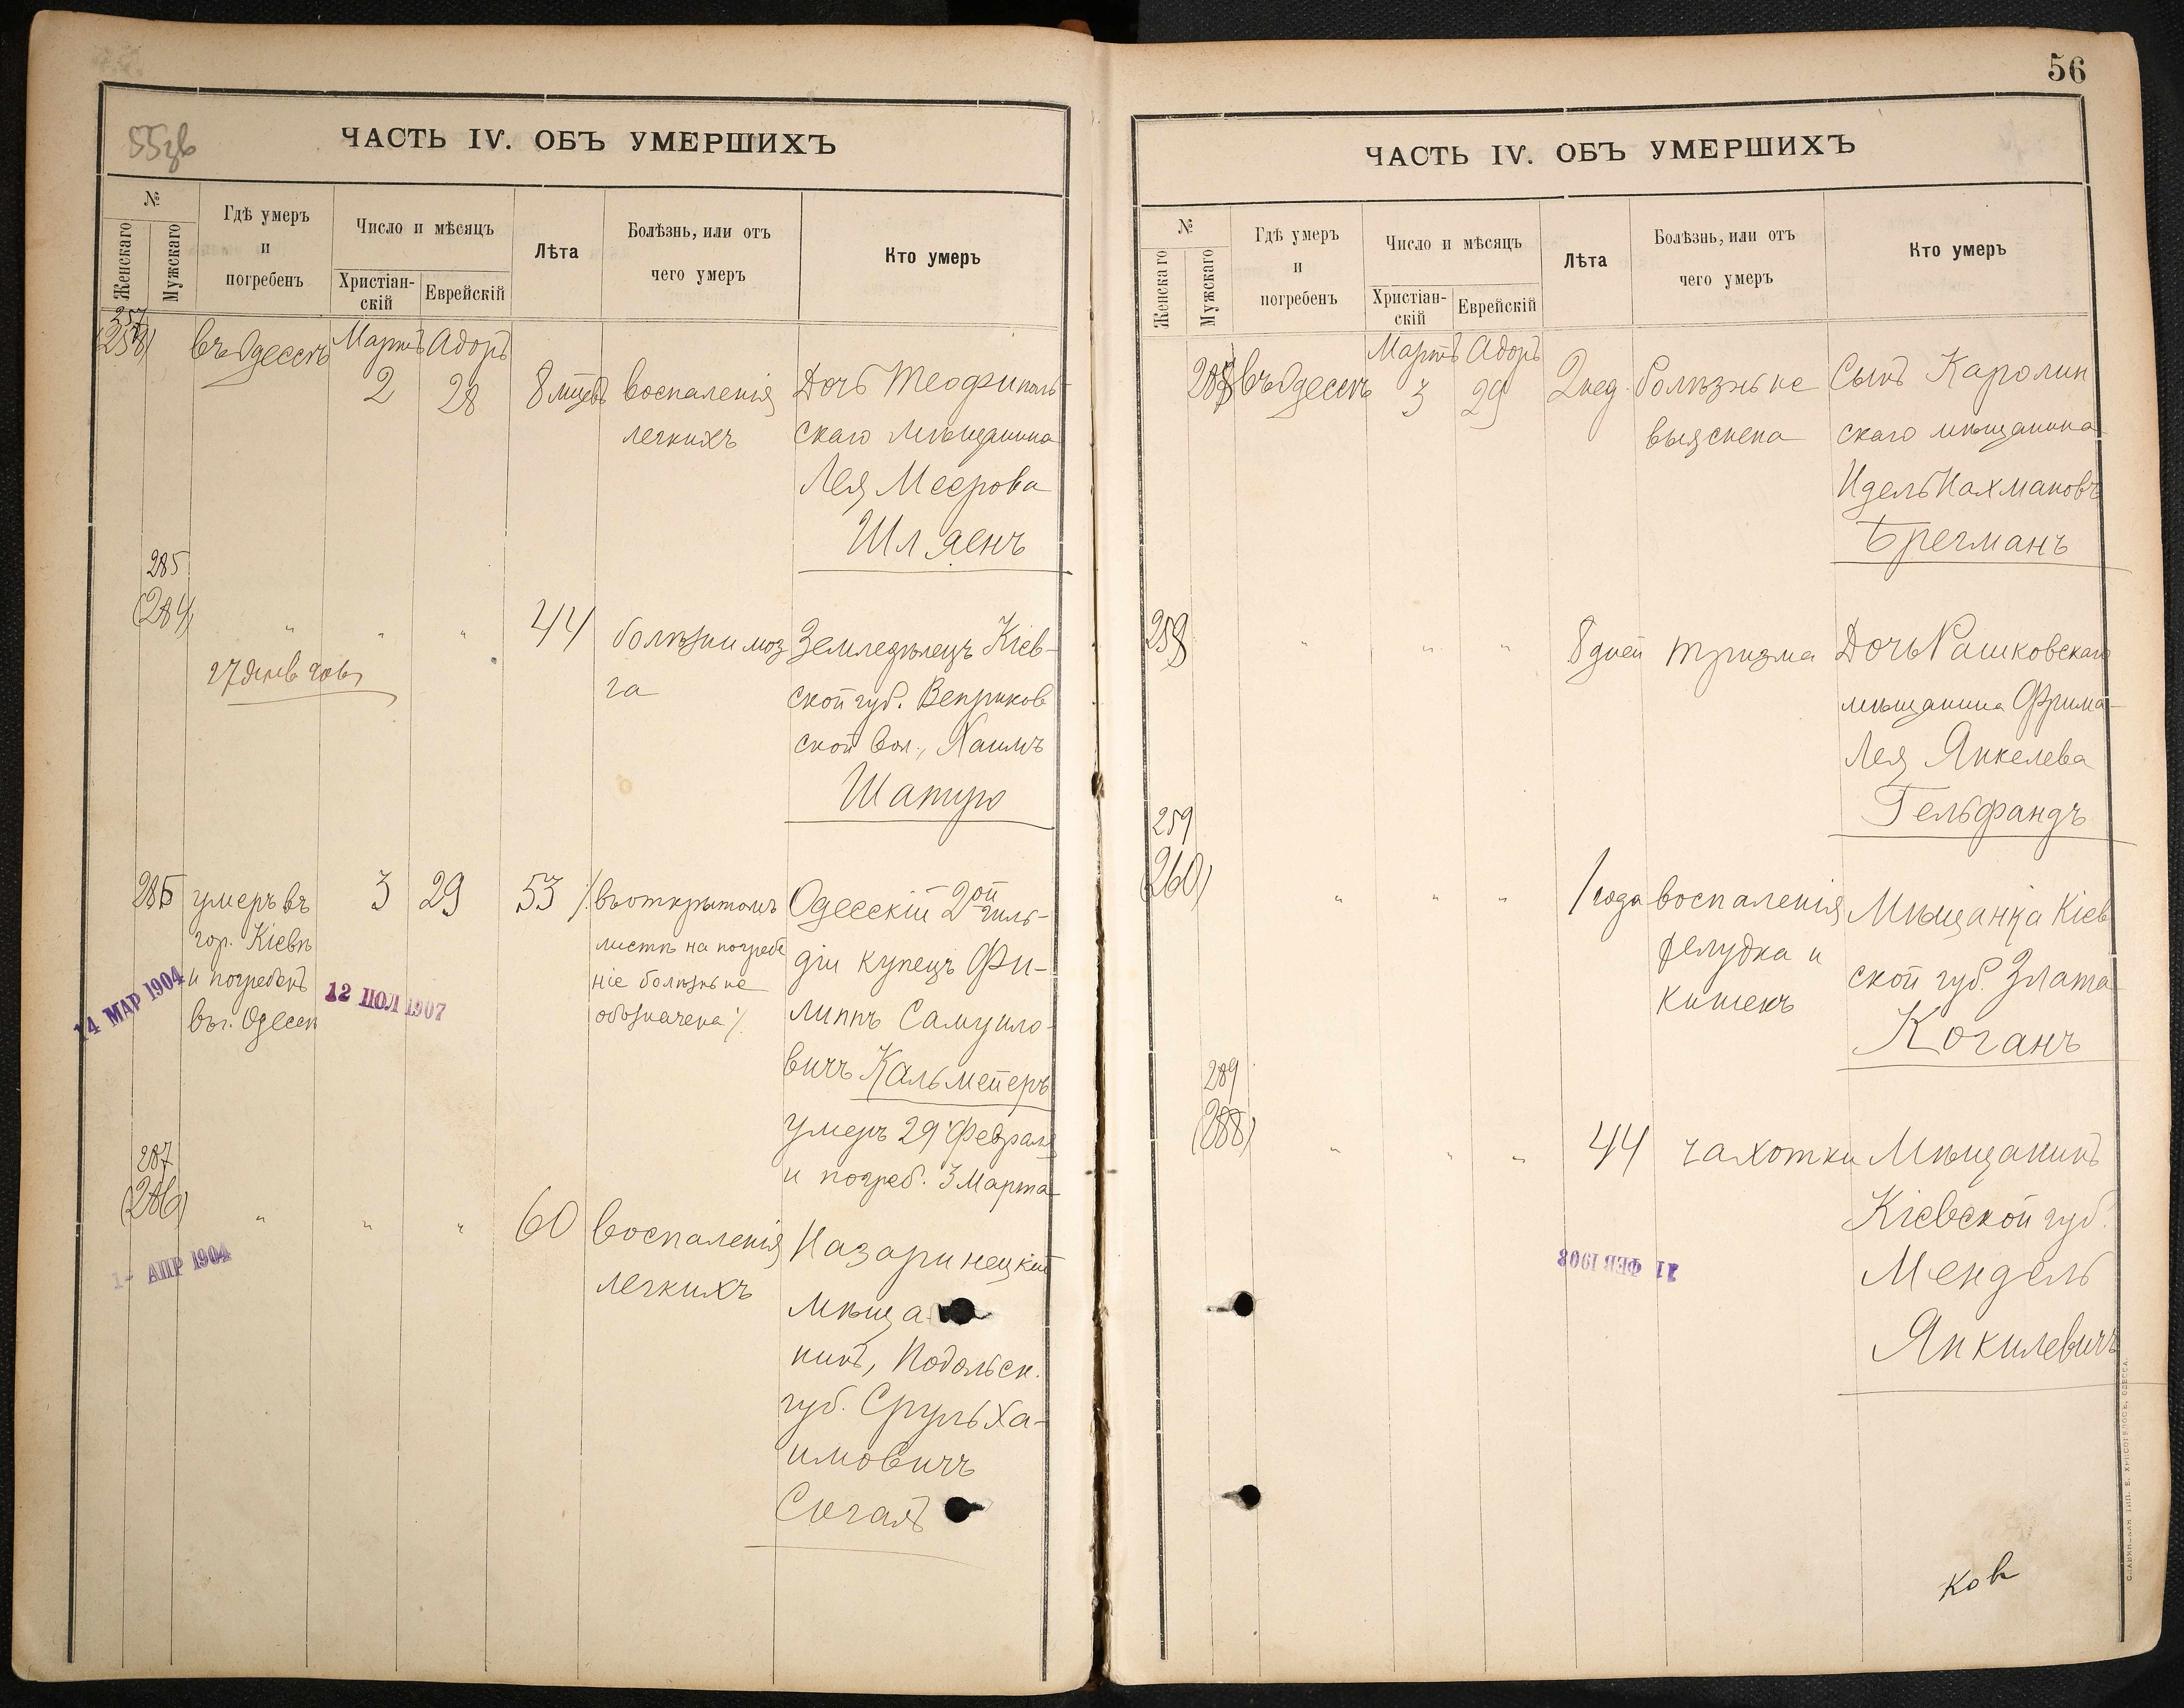 55зв
ЧАСТЬ IV. ОБЪ УМЕРШИХЪ
№
Женскаго
Мужскаго
Гдѣ умеръ
и
погребенъ
Число и мѣсяцъ
Христіан-
скій
Еврейскій
Лѣта
Болѣзнь, или отъ
чего умеръ
Кто умеръ
257
(258)
въ Одессѣ
Мартъ Адоръ
2 28
8 мѣсць
воспаленія
легкихъ
Дочь Теофиполь-
скаго мѣщанина
Лея Меерова
Шляенъ
285
(284)
" " "
44
болѣзни моз
га
Земледѣлецъ Кіев-
ской губ. Веприков
ской вол., Хаимъ
Шапиро
286
умеръ въ
гор. Кіевѣ
и погребенъ
въ г. Одессѣ
3 29
53
% въ открытомъ
листѣ на погребе
ніе болѣзнь не
обозначена %
Одесскій 2ой гиль-
діи купецъ Фи-
липпъ Самуило-
вичъ Кальмейеръ
умеръ 29 Февраля
и погреб. 3 Марта
14 МАР 1904
12 ІЮЛ 1907
287
(286)
" " "
60
воспаленія
легкихъ
Назаринецкій
мѣща
нинъ, Подольск.
губ. Сруль Ха-
имовичъ
Сигалъ
1- АПР 1904
56
ЧАСТЬ IV. ОБЪ УМЕРШИХЪ
№
Женскаго
Мужскаго
Гдѣ умеръ
и
погребенъ
Число и мѣсяцъ
Христіан-
скій
Еврейскій
Лѣта
Болѣзнь, или отъ
чего умеръ
Кто умеръ
288
въ Одессѣ
Мартъ Адоръ
3 29
2 нед.
болѣзнь не
выяснена
Сынъ Каролин
скаго мѣщанина
Идель Нахмановъ
Брегманъ
258
" " "
8 дней
тризма
Дочь Рашковскаго
мѣщанина Фрима-
Лея Янкелева
Гельфандъ
259
(260)
" " "
1 года
воспаленія
желудка и
кишекъ
Мѣщанка Кіев
ской губ. Злата
Коганъ
289
(288)
" " "
44
чахотки
Мѣщанинъ
Кіевской губ.
Мендель
Янкилевичъ
21 ФЕВ 1908
ков